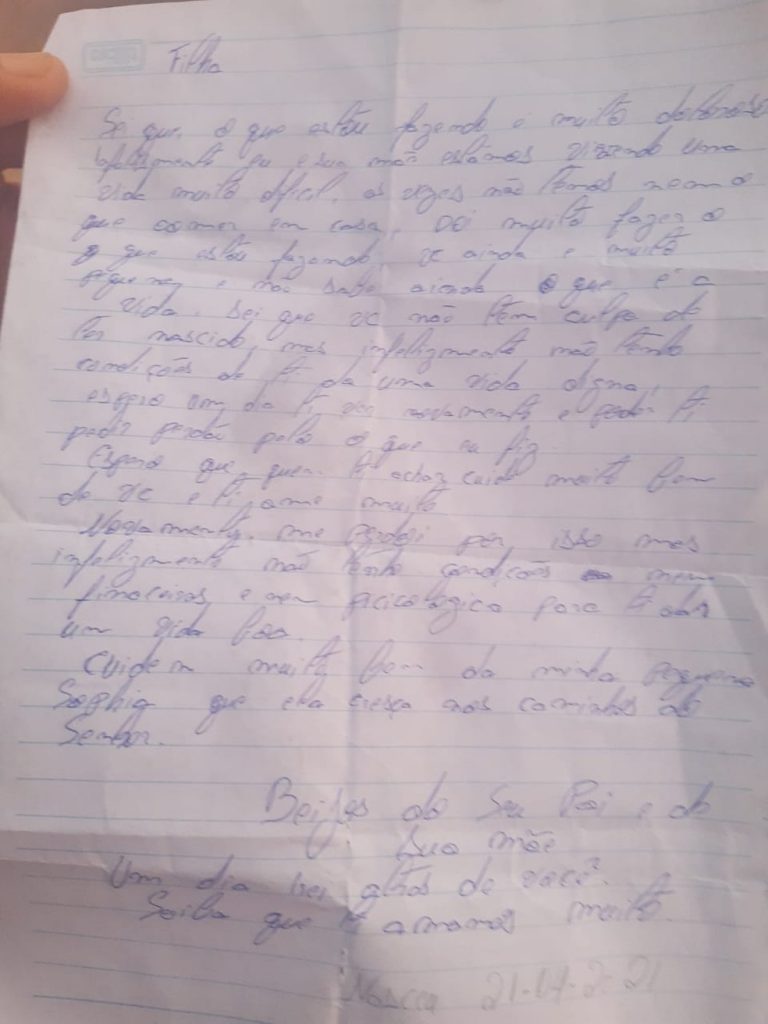 Filha
Sei que, o que estou fazendo e muito doloroso
infelizmente eu e sua mãe estamos vivendo uma
vida muito dificil. as vezes não temos nem o
que comer em casa, Dói muito fazer o
que estou fazendo. vc ainda e muito
pequena e não sabe ainda o que é a
vida. Sei que vc não tem culpa de
ter nascido, mas infelizmente não tenho
condições de ti da uma vida digna,
espero um dia ti ver novamente e poder ti
pedir perdão pelo o que eu fiz.
Espero que quem ti achar cuide muito bem
de vc e ti ame muito
Novamente. me perdoi por isso mas
infelizmente não tenho condições nem
financeiras, e nem pscicologico para ti dar
um vida boa.
Cuidem muito bem da minha pequena
Sophia que ela cresça nos caminhos do
Senhor.
Beijos do Seu Pai e da
Sua mãe
Um dia irei atrás de você.
Saiba que ti amamos muito.
Nasceu 21-04-2021